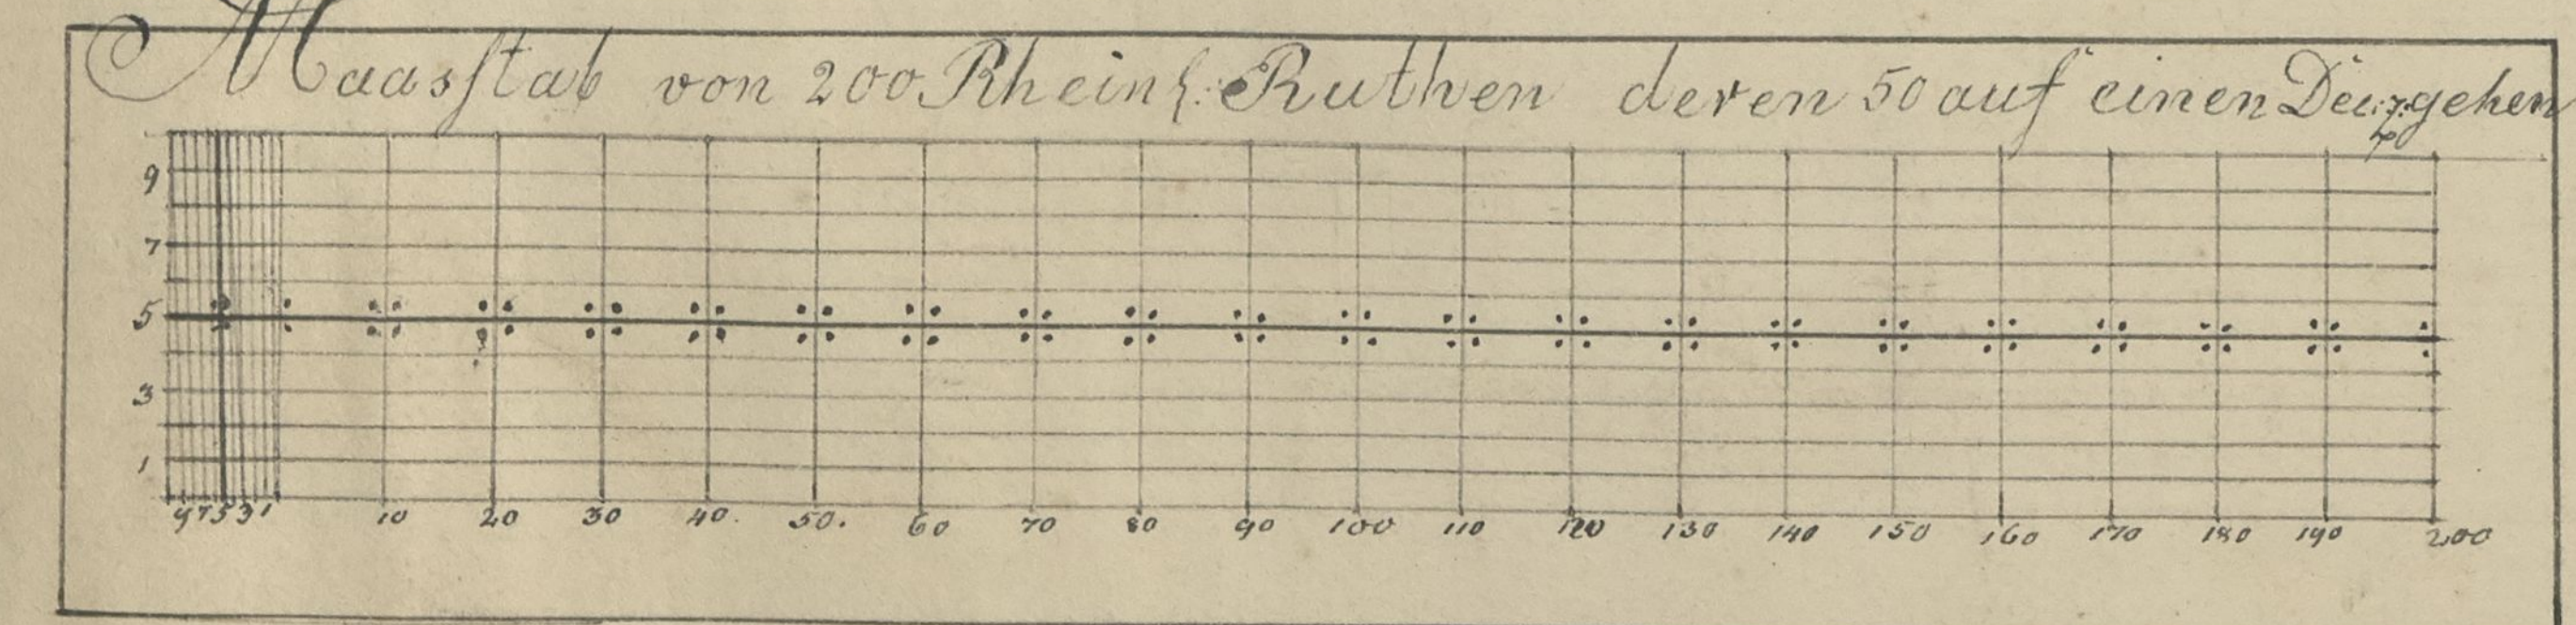 Maasstab von 200 Rheinl: Ruthen deren 50 auf einen Dec:z: gehen
9
7
5
3
1
9 7 5 3 1 10 20 30 40. 50. 60 70 80 90 100 110 120 130 140 150 160 170 180 190 200